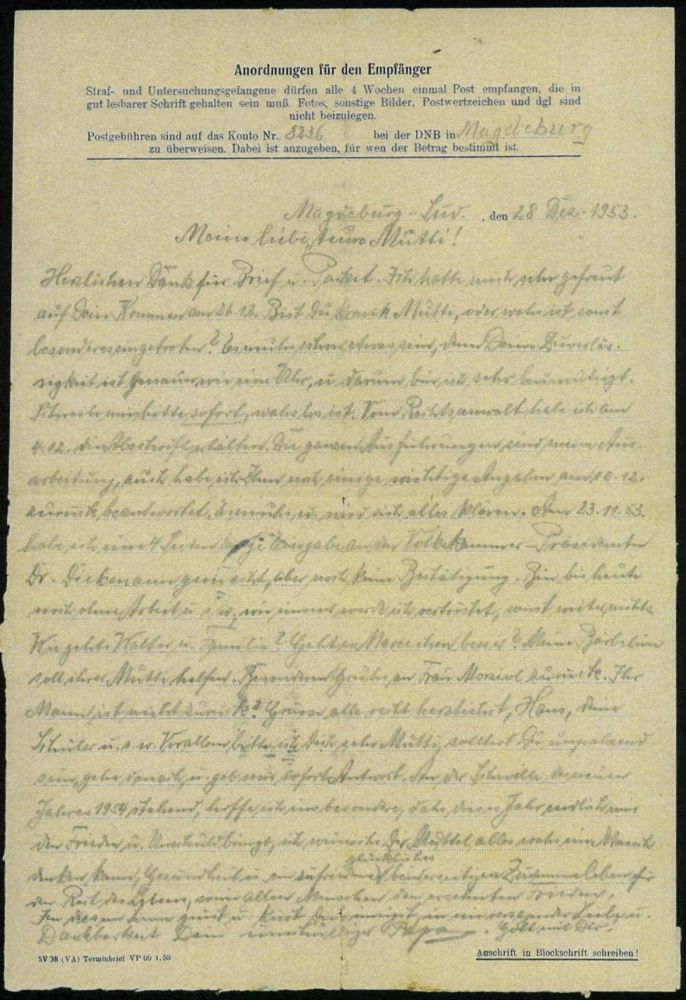 Anordnungen für den Empfänger
Straf- und Untersuchungsgefangene dürfen alle 4 Wochen einmal Post empfangen, die in
gut lesbarer Schrift gehalten sein muß. Fotos, sonstige Bilder, Postwertzeichen und dgl sind
nicht beizulegen.
Postgebühren sind auf das Konto Nr. 8236 bei der DNB in Magdeburg
zu überweisen. Dabei ist anzugeben, für wen der Betrag bestimmt ist.
Magdeburg-Sud. , den 28 Dez. 1953.
Meine liebe, teure Mutti!
Herzlichen Dank für Brief u. Paket. Ich hatte mich sehr gefreut
auf Dein Kommen am 26.12. Bist Du krank Mutti, oder was ist sonst
besonderes eingetreten? Es muss schon etwas sein, denn Deine Zuverläs-
sigkeit ist genau wie eine Uhr, u. darum bin ich sehr beunruhigt.
Schreibe mir bitte sofort, was los ist. Vom Rechtsanwalt habe ich am
4.12. die Abschrift erhalten. Die ganzen Ausführungen sind meine Aus-
arbeitung, auch habe ich Ihm noch einige wichtige Angaben am 10.12.
zurück beantwortet. Es muss u. wird sich alles klären. Am 23.11.53.
habe ich eine 4 Seiten lange Eingabe an den Volkskammer-Präsidenten
Dr. Dieckmann gemacht, aber noch keine Bestätigung. Bin bis heute
noch ohne Arbeit u. s. w., wie immer werde ich vertröstet, sonst weiter nichts.
Wie gehts Walter u. Familie? Geht es besser? Meine Bärbelin
soll ihrer Mutti helfen. Besonderen Gruß an Frau zurück. Ihr
Mann ist nicht zurück? Grüsse alle recht herzlichst, Hans, Deine
Schüler u. s. w. Vor allem bitte ich Dich sehr Mutti, solltest Du unpassend
sein, gehe danach, u. geb mir sofort Antwort. An der Schwelle des neuen
Jahres 1954 stehend, hoffe ich insbesondere, dass dieses Jahr endlich uns
den Frieden u. Unschuld bringe, ich wünsche Dir Muttel alles was ein Mensch
denken kann, Gesundheit u. ein zufriedenes glückliches Zusammenleben für
den Rest des Lebens, sowie allen Menschen den ersehnten Frieden.
In diesem Sinne grüsst u. küsst Dich innigst, in Liebe u.
Dankbarkeit Dein unschuldiger Papa. Gott mit Dir.
SV 38 (VA) Terminbrief VP 00 1.53
Anschrift in Blockschrift schreiben!